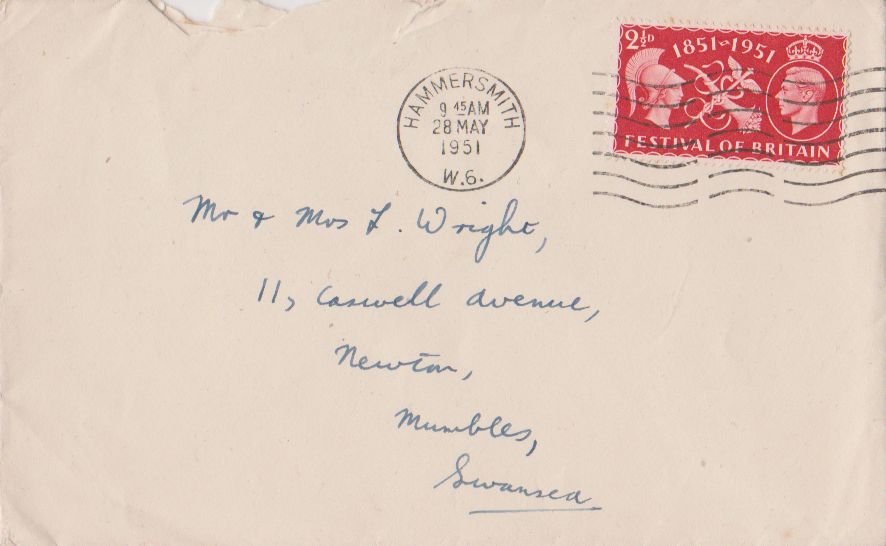 2½D
1851-1951
FESTIVAL OF BRITAIN
HAMMERSMITH
9 45 AM
28 MAY
1951
W.6.
Mr & Mrs F. Wright,
11, Caswell Avenue,
Newton,
Mumbles,
Swansea